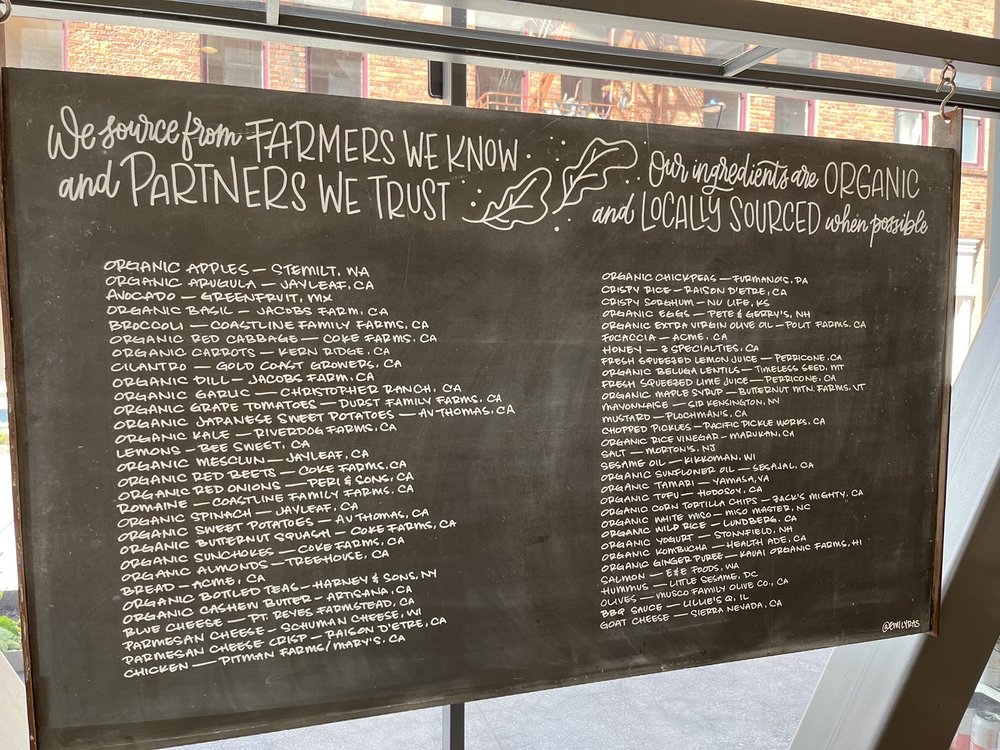 We source from FARMERS WE KNOW
and PARTNERS WE TRUST
ORGANIC APPLES — STEMILT, WA
ORGANIC ARUGULA — JAYLEAF, CA
AVOCADO — GREENFRUIT, MX
ORGANIC BASIL — JACOBS FARM, CA
BROCCOLI — COASTLINE FAMILY FARMS, CA
ORGANIC RED CABBAGE — COKE FARMS, CA
ORGANIC CARROTS — KERN RIDGE, CA
CILANTRO — GOLD COAST GROWERS, CA
ORGANIC DILL — JACOBS FARM, CA
ORGANIC GARLIC — CHRISTOPHER RANCH, CA
ORGANIC GRAPE TOMATOES — DURST FAMILY FARMS, CA
ORGANIC JAPANESE SWEET POTATOES — AV THOMAS, CA
ORGANIC KALE — RIVERDOG FARMS, CA
LEMONS — BEE SWEET, CA
ORGANIC MESCLUN — JAYLEAF, CA
ORGANIC RED BEETS — COKE FARMS, CA
ORGANIC RED ONIONS — PERI & SONS, CA
ROMAINE — COASTLINE FAMILY FARMS, CA
ORGANIC SPINACH — JAYLEAF, CA
ORGANIC SWEET POTATOES — AV THOMAS, CA
ORGANIC BUTTERNUT SQUASH — COKE FARMS, CA
ORGANIC SUNCHOKES — COKE FARMS, CA
ORGANIC ALMONDS — TREEHOUSE, CA
BREAD — ACME, CA
ORGANIC BOTTLED TEAS — HARNEY & SONS, NY
ORGANIC CASHEW BUTTER — ARTISANA, CA
BLUE CHEESE — PT. REYES FARMSTEAD, CA
PARMESAN CHEESE — SCHUMAN CHEESE, WI
PARMESAN CHEESE CRISP — RAISON D'ETRE, CA
CHICKEN — PITMAN FARMS/MARY'S, CA
Our ingredients are ORGANIC
and LOCALLY SOURCED when possible
ORGANIC CHICKPEAS — FURMANO'S, PA
CRISPY RICE — RAISON D'ETRE, CA
CRISPY SORGHUM — NU LIFE, KS
ORGANIC EGGS — PETE & GERRY'S, NH
ORGANIC EXTRA VIRGIN OLIVE OIL — POLIT FARMS, CA
FOCACCIA — ACME, CA
HONEY — Z SPECIALTIES, CA
FRESH SQUEEZED LEMON JUICE — PERRICONE, CA
ORGANIC BELUGA LENTILS — TIMELESS SEED, MT
FRESH SQUEEZED LIME JUICE — PERRICONE, CA
ORGANIC MAPLE SYRUP — BUTTERNUT MTN. FARMS, VT
MAYONNAISE — SIR KENSINGTON, NY
MUSTARD — PLOCHMAN'S, CA
CHOPPED PICKLES — PACIFIC PICKLE WORKS, CA
ORGANIC RICE VINEGAR — MARUKAN, CA
SALT — MORTON'S, NJ
SESAME OIL — KIKKOMAN, WI
ORGANIC SUNFLOWER OIL — SESAJAL, CA
ORGANIC TAMARI — YAMASA, VA
ORGANIC TOFU — HODOSOY, CA
ORGANIC CORN TORTILLA CHIPS — ZACK'S MIGHTY, CA
ORGANIC WHITE MISO — MISO MASTER, NC
ORGANIC WILD RICE — LUNDBERG, CA
ORGANIC YOGURT — STONYFIELD, NH
ORGANIC KOMBUCHA — HEALTH ADE, CA
ORGANIC GINGER PUREE — KAUAI ORGANIC FARMS, HI
SALMON — E&E FOODS, WA
HUMMUS — LITTLE SESAME, DC
OLIVES — MUSCO FAMILY OLIVE CO., CA
BBQ SAUCE — LILLIE'S Q, IL
GOAT CHEESE — SIERRA NEVADA, CA